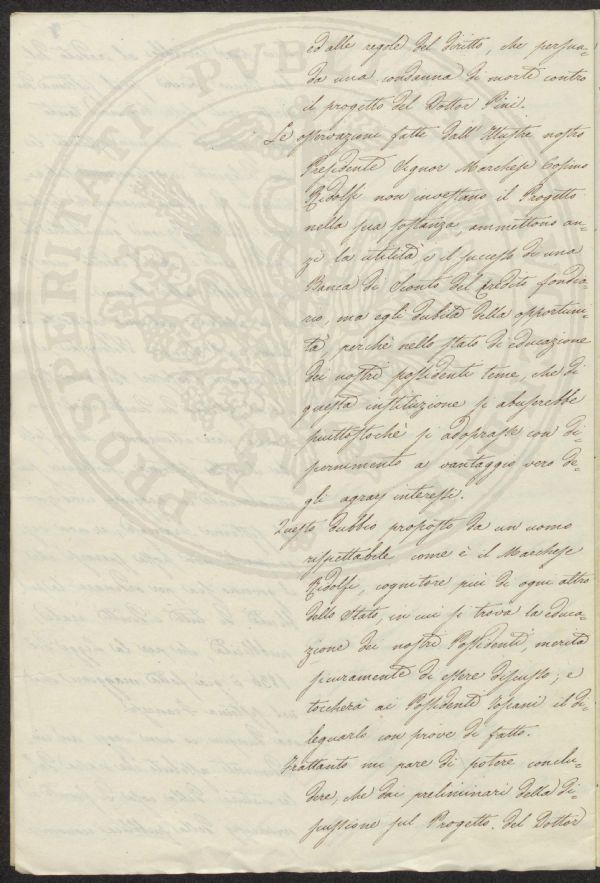 ed alle regole del diritto, che persua-
da una condanna di morte contro
il progetto del Dottor Pini.
Le osservazioni fatte dall'Illustre nostro
Presidente Signor Marchese Cosimo
Ridolfi non investano il Progetto
nella sua sostanza, ammettono an-
zi la utilità e il successo di una
Banca di Sconto del Credito fondia-
rio, ma egli dubita della opportuni-
tà, perchè nello stato di educazione
dei nostri possidenti teme, che di
questa instituzione si abuserebbe
piuttostochè si adoprasse con di-
scernimento a vantaggio vero de-
gli agrarj interessi.
Questo dubbio proposto da un uomo
rispettabile come è il Marchese
Ridolfi, cognitore più di ogni altro
dello Stato, in cui si trova la educa-
zione dei nostri Possidenti, merita
sicuramente di essere discusso; e
toccherà ai Possidenti Toscani il di-
leguarlo con prove di fatto.
Frattanto mi pare di potere conclu-
dere, che dai preliminari della di-
scussione sul Progetto del Dottor
PROSPERITATI PVB